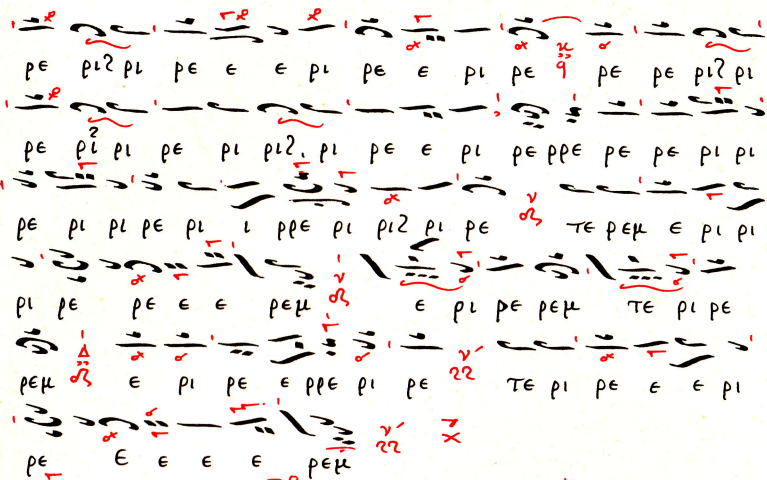 ρε ρι ρι ρε ε ε ρι ρε ε ρι ρε ρε ρε ρι ρι
ρε ρι ρι ρε ρι ρι ρι ρε ε ρι ρε ρρε ρε ρε ρι ρι
ρε ρι ρι ρε ρι ι ρρε ρι ρι ρι ρε τε ρεμ ε ρι ρι
ρι ρε ρε ε ε ρεμ ε ρι ρε ρεμ τε ρι ρε
ρεμ ε ρι ρε ε ρρε ρι ρε τε ρι ρε ε ε ρι
ρε ε ε ε ε ρεμ